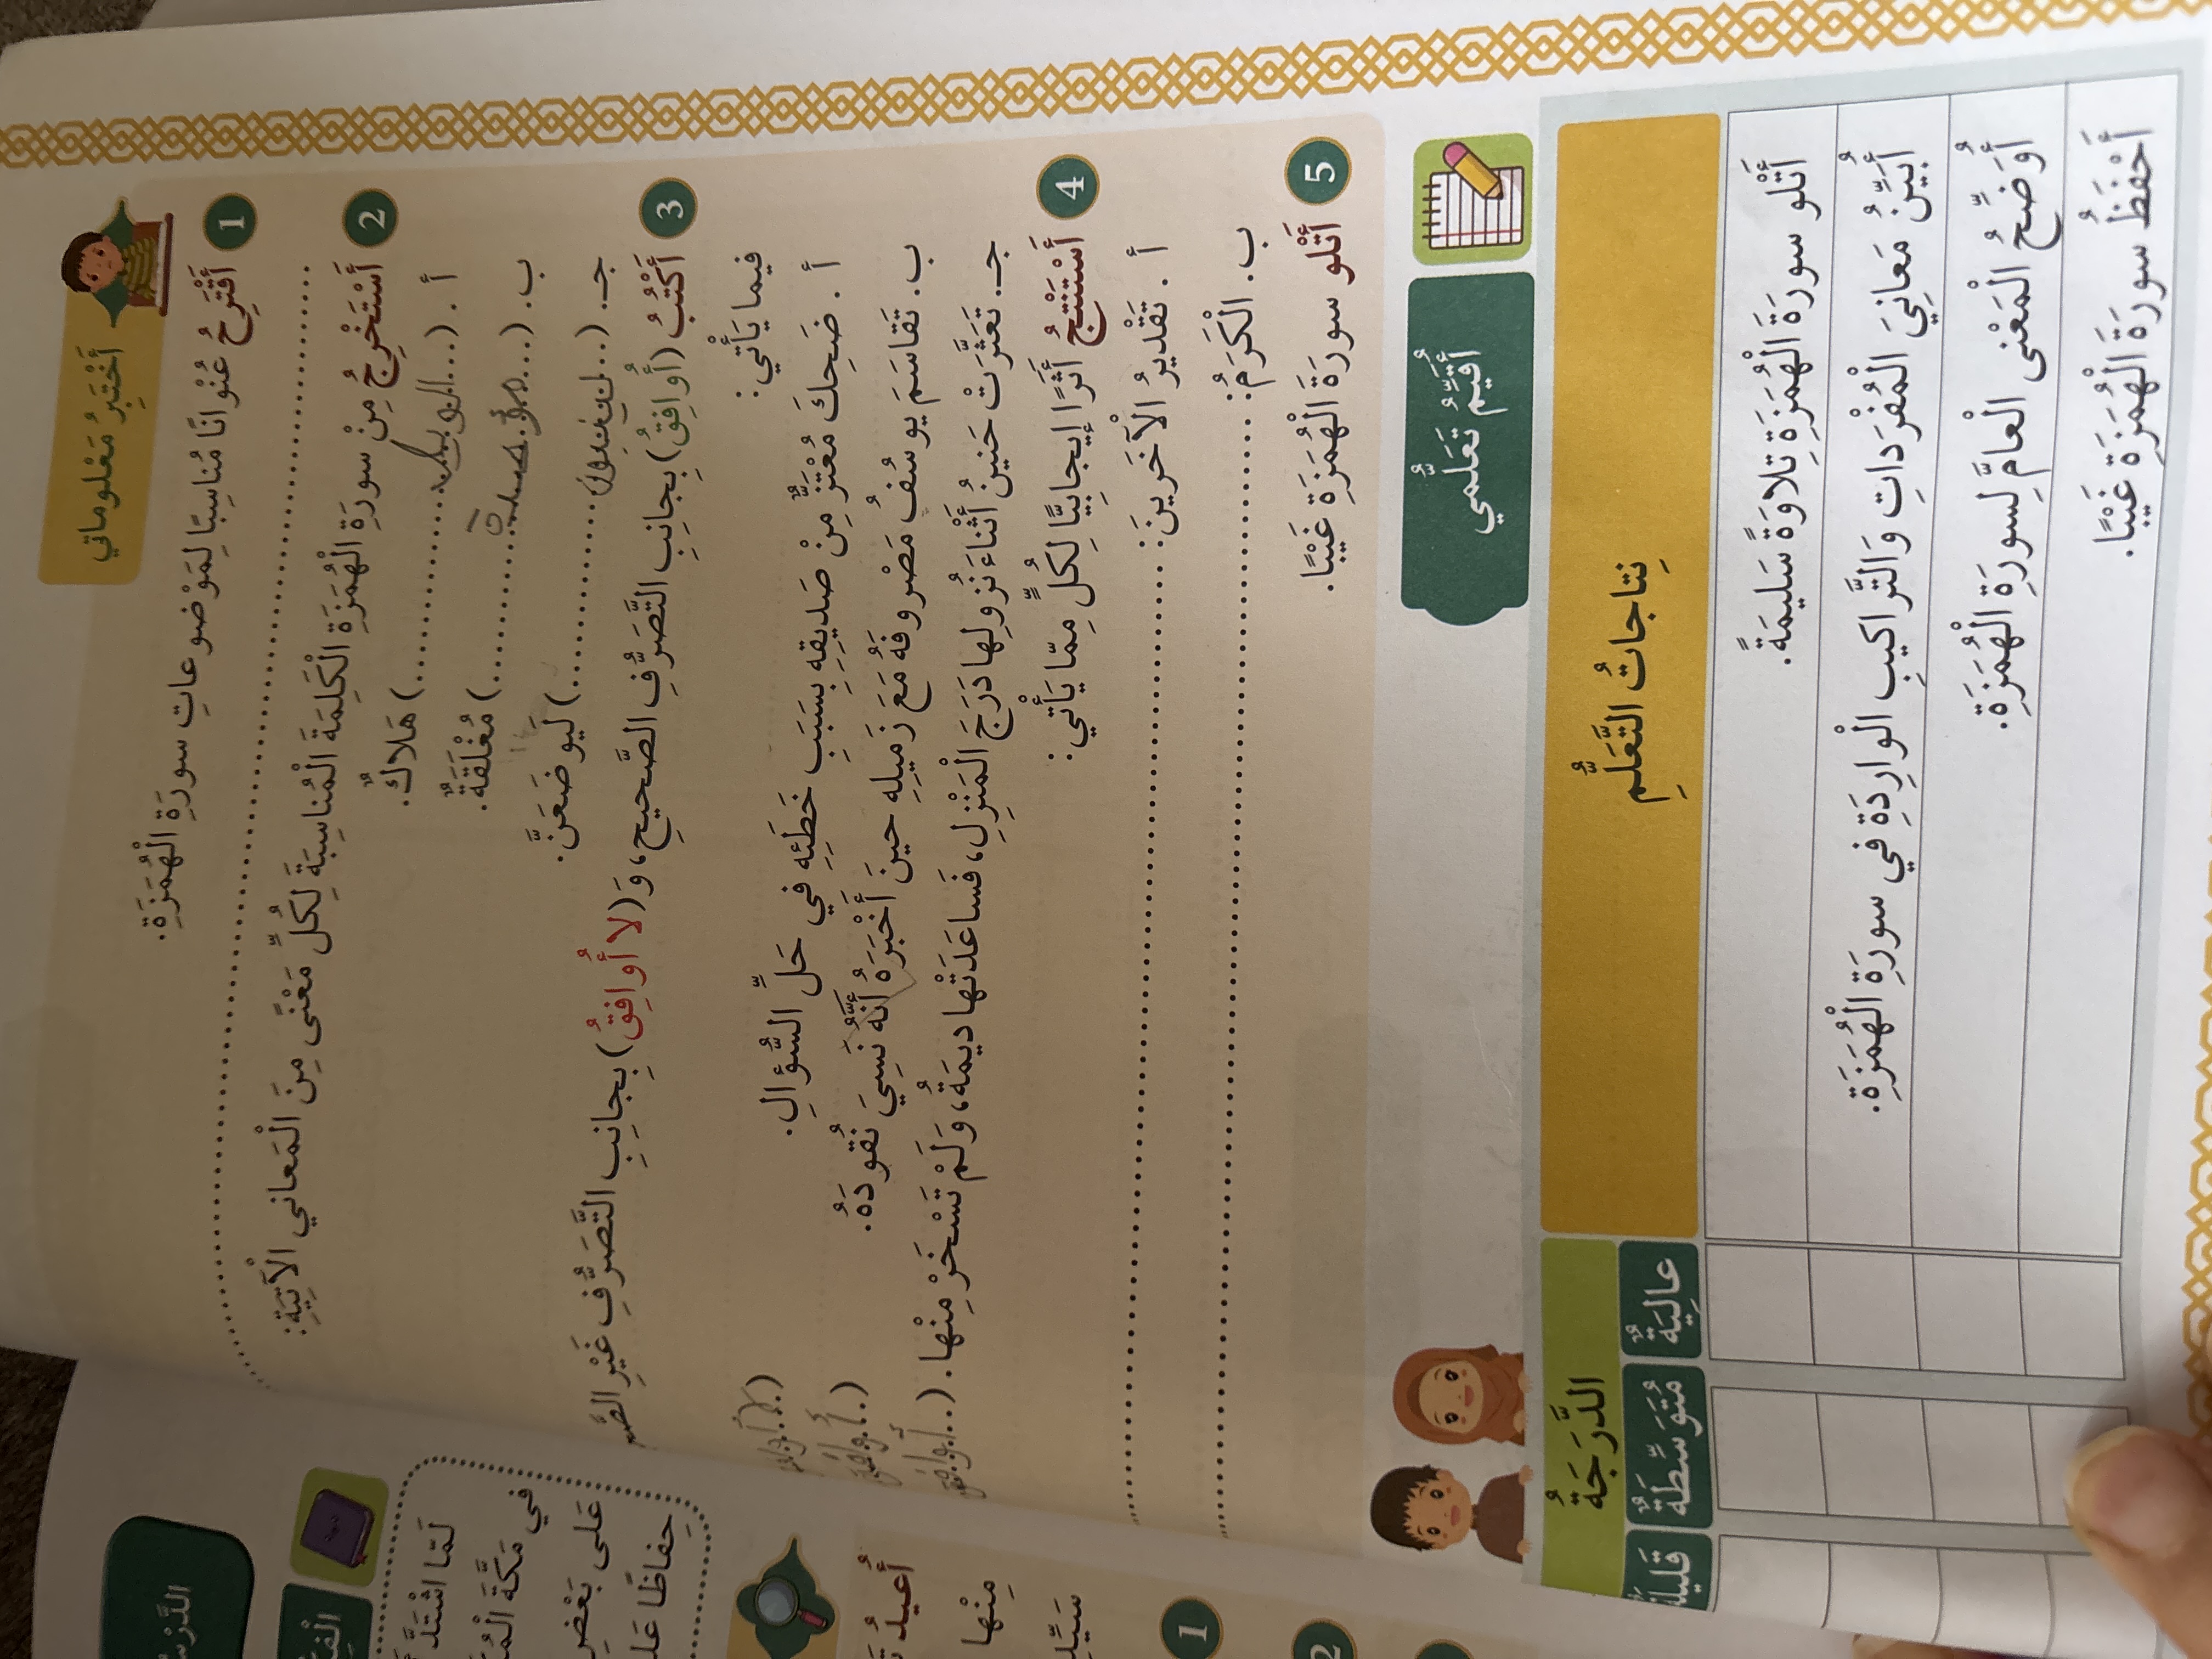 أَخْتَبِرُ مَعْلوماتي
1 أَقْتَرِحُ عُنْوانًا مُناسِبًا لِمَوْضوعاتِ سورَةِ الْهُمَزَةِ.
2 أَسْتَخْرِجُ مِنْ سورَةِ الْهُمَزَةِ الْكَلِمَةَ الْمُناسِبَةَ لِكُلِّ مَعْنًى مِنَ الْمَعاني الْآتِيَةِ:
أ . (....ويل....) هَلاكٌ.
ب. (....مؤصدة....) مُغْلَقَةٌ.
جـ. (....لينبذن....) لَيوضَعَنَّ.
3 أَكْتُبُ (أُوافِقُ) بِجانِبِ التَّصَرُّفِ الصَّحيحِ، وَ(لا أُوافِقُ) بِجانِبِ التَّصَرُّفِ غَيْرِ
فيما يَأْتي:
أ . ضَحِكَ مُعْتَزٌّ مِنْ صَديقِهِ بِسَبَبِ خَطَئِهِ في حَلِّ السُّؤالِ. (لا
ب. تَقاسَمَ يوسُفُ مَصْروفَهُ مَعَ زَميلِهِ حينَ أَخْبَرَهُ أَنَّهُ نَسِيَ نُقودَهُ. (أوافق
جـ. تَعَثَّرَتْ حَنينُ أَثْناءَ نُزولِها دَرَجَ الْمَنْزِلِ، فَساعَدَتْها ديمَةُ، وَلَمْ تَسْخَرْ مِنْها. (أوافق
4 أَسْتَنْتِجُ أَثَرًا إيجابِيًّا لِكُلٍّ مِمّا يَأْتي:
أ . تَقْديرُ الْآخَرينَ:
ب. الْكَرَمُ:
5 أَتْلو سورَةَ الْهُمَزَةِ غَيْبًا.
أُقَيِّمُ تَعَلُّمي
نِتاجاتُ التَّعَلُّمِ
الدَّرَجَةُ
عالِيَةٌ مُتَوَسِّطَةٌ قَليلَةٌ
أَتْلو سورَةَ الْهُمَزَةِ تِلاوَةً سَليمَةً.
أُبَيِّنُ مَعانِيَ الْمُفْرَداتِ وَالتَّراكيبِ الْوارِدَةِ في سورَةِ الْهُمَزَةِ.
أُوَضِّحُ الْمَعْنى الْعامَّ لِسورَةِ الْهُمَزَةِ.
أَحْفَظُ سورَةَ الْهُمَزَةِ غَيْبًا.
لَمّا اشْتَدَّ
في مَكَّةَ
عَلى بَعْضِ
حِفاظًا
أُعيدُ
مِنْها
1
2